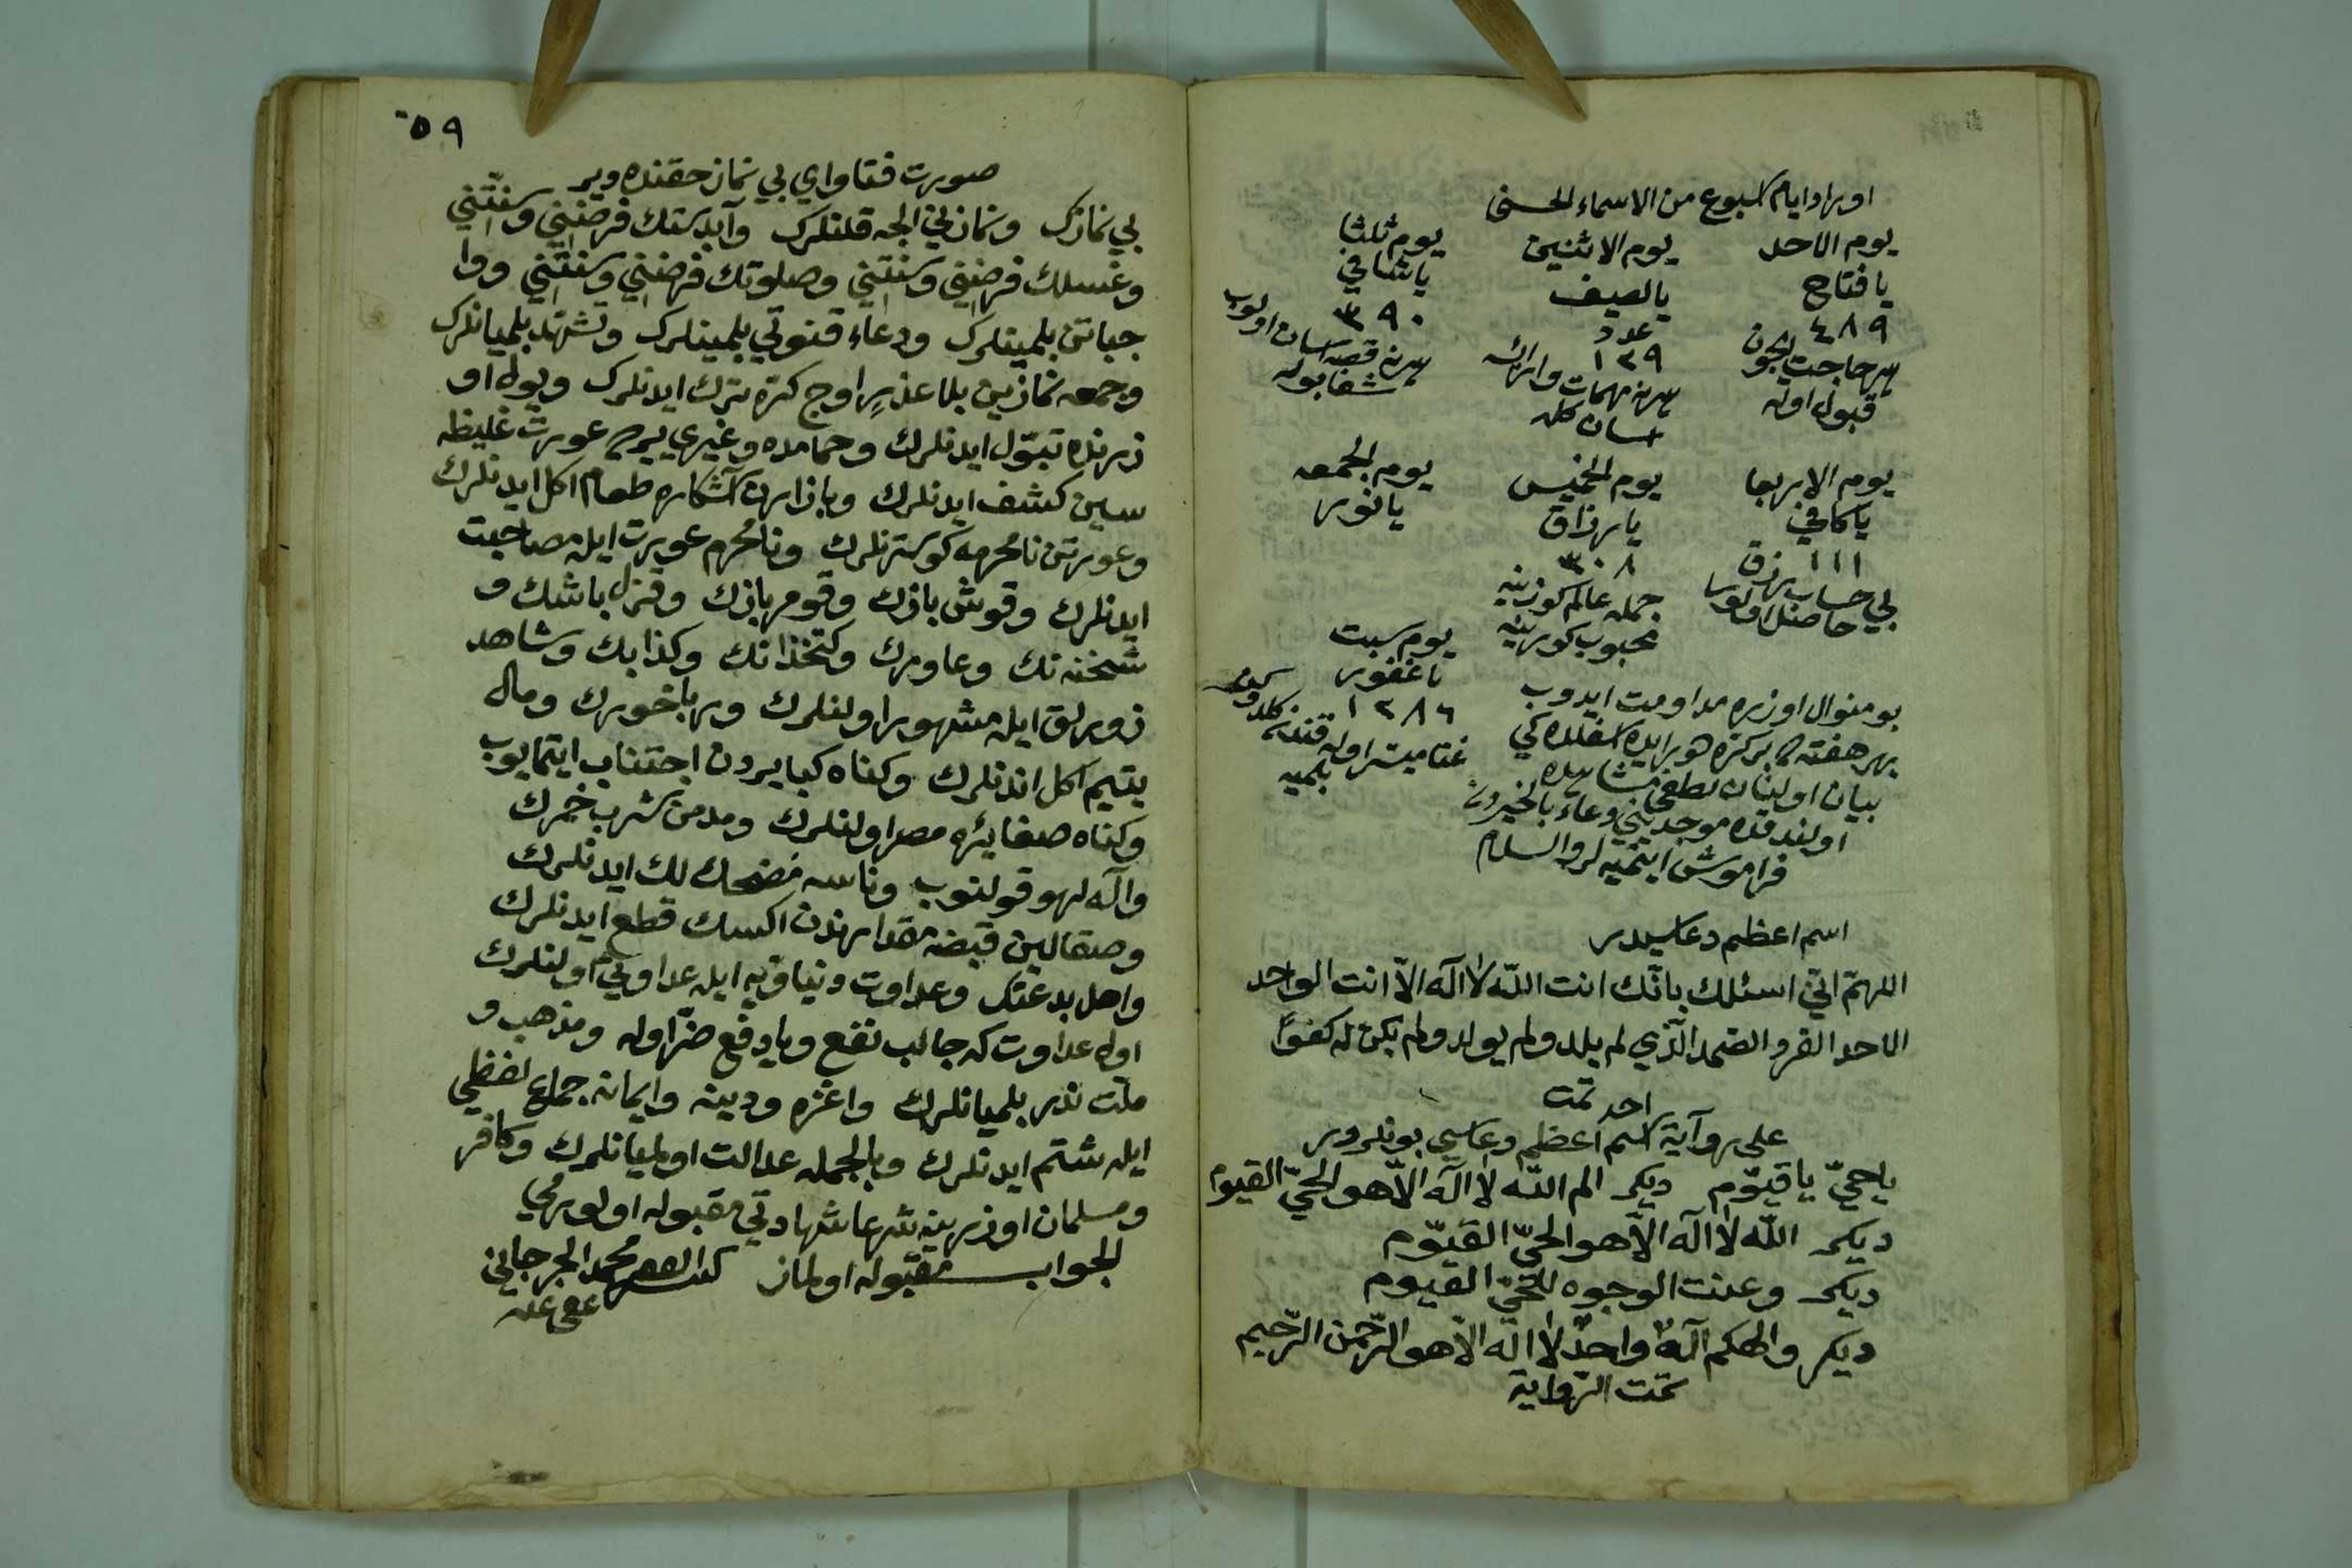 اوراد ايام اسبوع من الاسماء الحسنى
يوم الاحد
يا فتاح
٤٨٩
هر حاجت ايچون
قبول اوله
يوم الاثنين
يا لصيف
عدد
١٢٩
مهمات
اسان كله
يوم ثلثا
يا شافي
٣٩٠
شفا بوله
يوم الاربعا
يا كافي
١١١
بي حساب رزق
حاصل اولور
يوم الخميس
يا رزاق
٣٠٨
جمله عالم كوزينه
محبوب كورينه
يوم الجمعه
يا نور
يوم سبت
يا غفور
١٢٨٦
بو منوال اوزره مداومت ايدوب
بهر هفته ده بر كره
بيان اولينان
اولندقده موجدينني دعاء بالخيردن
فراموش ايتميه لر والسلام
اسم اعظم دعاسيدر
اللهمّ انّي اسئلك بانّك انت اللّه لا اله الّا انت الواحد
الاحد الفرد الصمد الّذي لم يلد ولم يولد ولم يكن له كفوًا
احد تمت
على رواية اسم اعظم دعاسي بونلردر
يا حيّ يا قيّوم ديكر الم اللّه لا اله الّا هو الحيّ القيّوم
ديكر اللّه لا اله الّا هو الحيّ القيّوم
ديكر وعنت الوجوه للحيّ القيوم
ديكر والهكم الهٌ واحدٌ لا اله الّا هو الرّحمن الرّحيم
تمّت الرّواية
٥٩
صورت فتاواي بي نماز حقنده دير
بي نمازك ونمازيني الجه قلنلرك وآبدستك فرضيني وسنّتني
وغسلك فرضيني وسنّتني وصلوتك فرضنني وسنّتني ووا
جباتن بلمينلرك ودعاء قنوتي بلمينلرك وتشهّد بلميانلرك
وجمعه نمازين بلا عذرٍ اوچ كره ترك ايدنلرك ويول او
زرنده تبوّل ايدنلرك وحمامده وغيري يرده عورت غليظه
سين كشف ايدنلرك وبازارده آشكاره طعام اكل ايدنلرك
وعورتن نامحرمه كوسترنلرك ونامحرم عورت ايله مصاحبت
ايدنلرك وقوش بازك وقومربازك وقزل باشك و
شحنه نك وعاومرك وكتخذانك وكذابك وشاهد
زورلق ايله مشهور اولنلرك ورباخورك ومال
يتيم اكل ايدنلرك وكناه كبايردن اجتناب ايتمايوب
وكناه صغايره مصر اولنلرك ومدمن شرب خمرك
وآله لهو قولنوب وناسه مضحك لك ايدنلرك
وصقالين قبضه مقدارندن اكسك قطع ايدنلرك
واهل بدعتك وعداوت دنياويه ايله عداوتي اولنلرك
اول عداوت كه جالب نفع ويا دفع ضرّ اوله ومذهب و
ملّت ندر بلميانلرك واغزه ودينه وايمانه جماع لفظي
ايله شتم ايدنلرك وبالجمله عدالت اولميانلرك وكافر
ومسلمان اوزرينه شرعا شهادتي مقبوله اولورمي
الجواب مقبوله اولماز كتبه الفقير محمد الجرجاني
عفي عنه